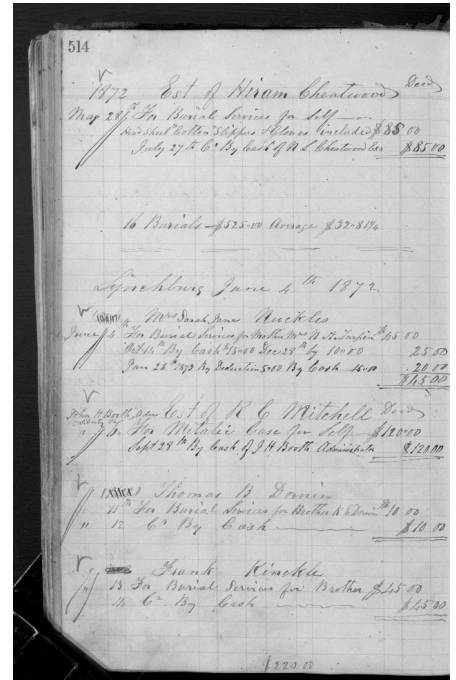 514
1872 Est of Hiram Cheatwood Decd
May 28th For Burial Services for Self
Head Shed Cotton Slippers & Gloves included $85 00
July 27th Cr By Cash of N L Cheatwood Exr $85 00
16 Burials $525.00 Average $32-81¼
Lynchburg June 4th 1872
Mrs Sarah Jane Nuckles
June 4th For Burial Services for Mother Mrs N. A. Turpin 45 00
Oct 14th By Cash $15.00 Dec 28th by 10.00 25 00
Jan 28th 1873 By Deduction 5.00 By Cash 15.00 20 00
$45.00
John H. Booth, Adm Est of R E Mitchell Decd
For Metalic Case for Self $120.00
Sept 28th By Cash of J H Booth Administrator $120.00
Thomas B Dornin
" 11th For Burial Services for Brother 10.00
" 12 Cr By Cash $10.00
Frank Kinckle
" 13 For Burial Services for Brother $45 00
" 14 Cr By Cash $45 00
$220.00